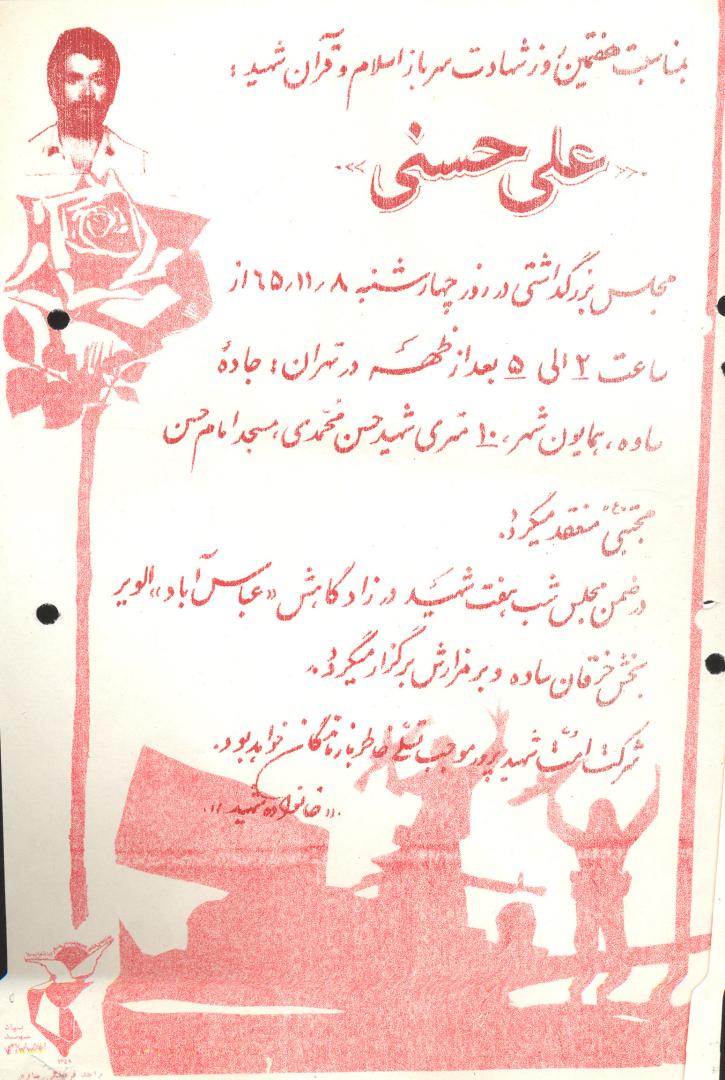 بمناسبت هفتمین روز شهادت سرباز اسلام و قرآن شهید:
«علی حسنی»
مجلس بزرگداشتی در روز چهارشنبه ۶۵٫۱۱٫۸ از
ساعت ۲ الی ۵ بعد از ظهر در تهران: جادهٔ
ساوه، همایون شهر، ۱۰ متری شهید حسن محمدی، مسجد امام حسن
مجتبی (ع) منعقد میگردد.
در ضمن مجلس شب هفت شهید در زادگاهش «عباس آباد» الویر
بخش خرقان ساوه و بر مزارش برگزار میگردد.
شرکت امت شهیدپرور موجب تسلی خاطر بازماندگان خواهد بود.
«خانواده شهید»
بنیاد
شهید